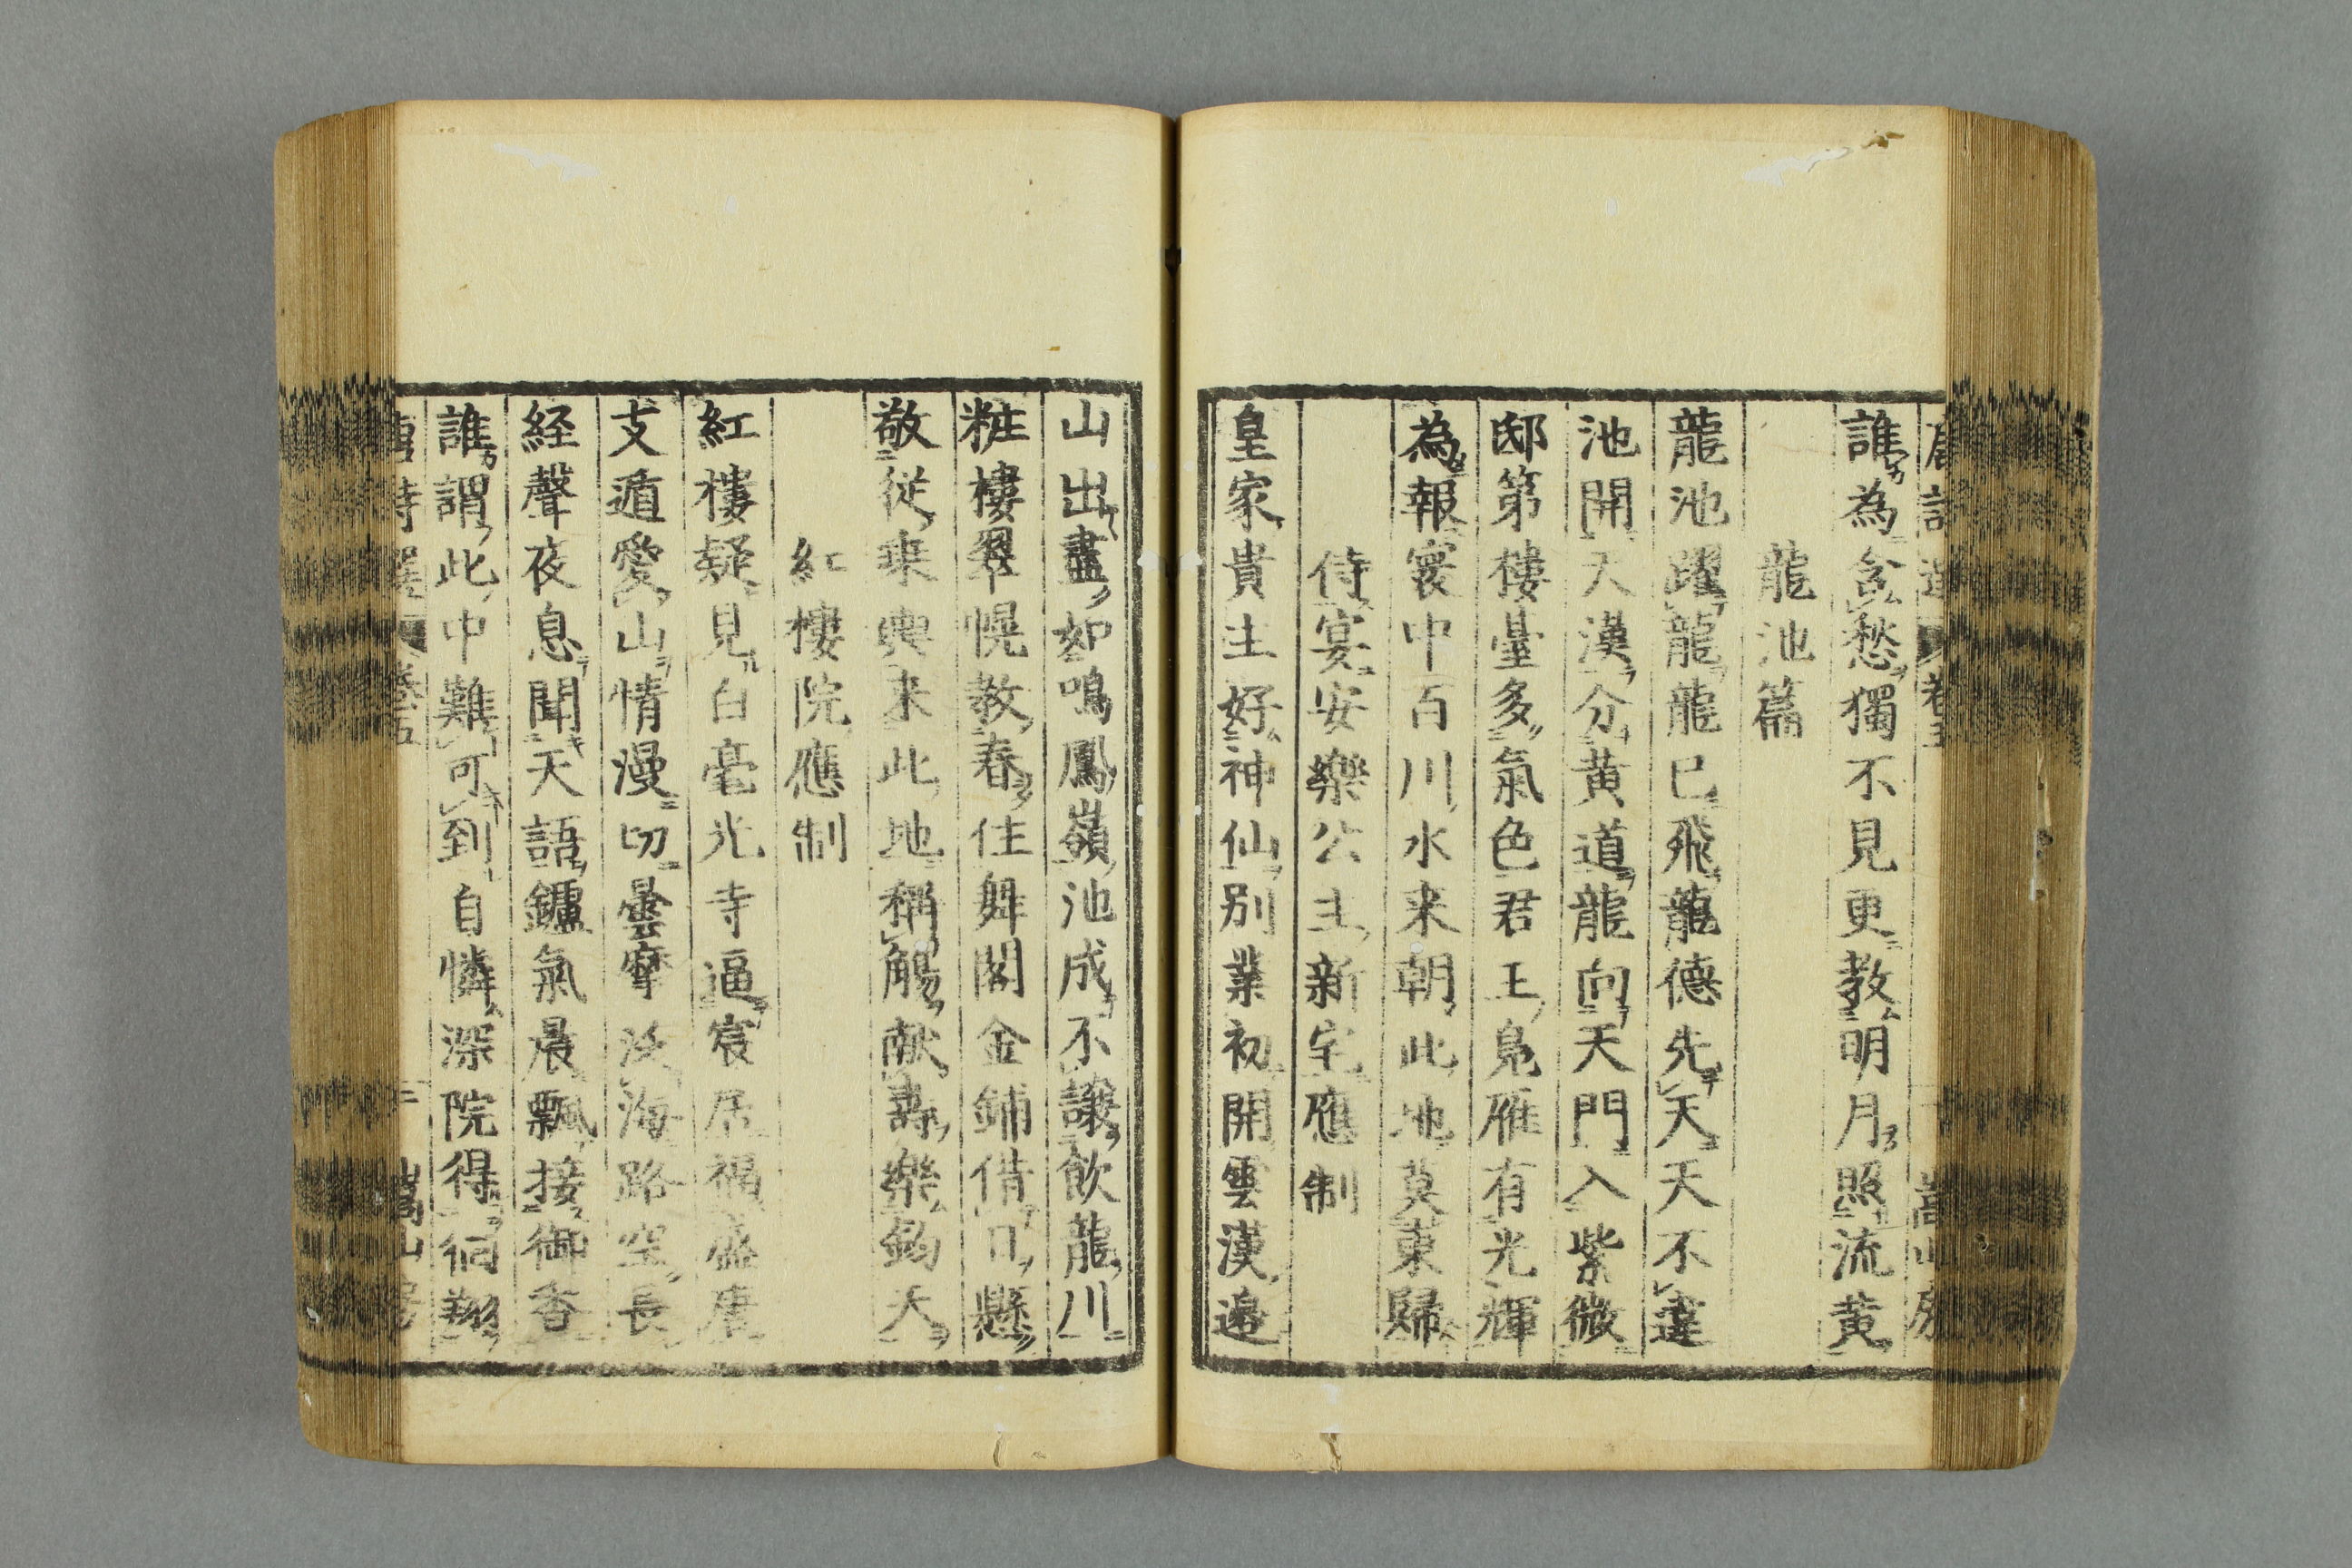 唐詩選 卷五 嵩山房
誰為含愁獨不見更教明月照流黄
龍池篇
龍池躍龍龍已飛龍德先天天不違
池開天漢分黄道龍向天門入紫微
邸第樓臺多氣色君王鳬雁有光輝
為報寰中百川水来朝此地莫東歸
侍宴安樂公主新宅應制
皇家貴主好神仙別業初開雲漢邉
山出盡如鳴鳳嶺池成不讓飲龍川
粧樓翠幌教春住舞閣金鋪借日懸
敬從乗輿来此地稱觴献壽樂鈞天
紅樓院應制
紅樓疑見白毫光寺逼宸居福盛唐
支遁愛山情漫切曇摩泛海路空長
経聲夜息聞天語鑪氣晨飄接御香
誰謂此中難可到自憐深院得徊翔
唐詩選 卷五 二 嵩山房